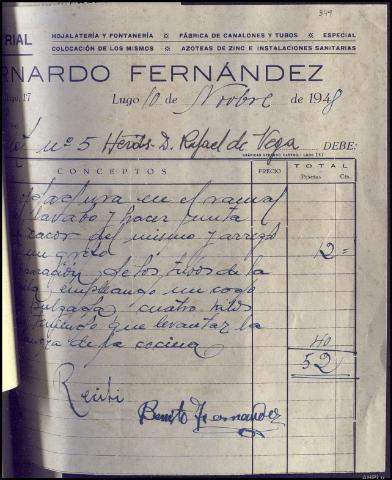 344
RIAL HOJALATERÍA Y FONTANERÍA ✲ FÁBRICA DE CANALONES Y TUBOS ✲ ESPECIAL
COLOCACIÓN DE LOS MISMOS ✲ AZOTEAS DE ZINC E INSTALACIONES SANITARIAS
RNARDO FERNÁNDEZ
17 Lugo 10 de Novbre de 1948
nº 5 Herds. D. Rafael de Vega DEBE:
CONCEPTOS PRECIO TOTAL
Pesetas Cts.
en el ramal
lavabo y hacer junta
del mismo y arreglo
un grifo 12 =
de los tubos de la
empleando un codo
cuatro kilos
que levantar la
de la cocina 40
52
Recibi
Benito Fernandez
AHPLu